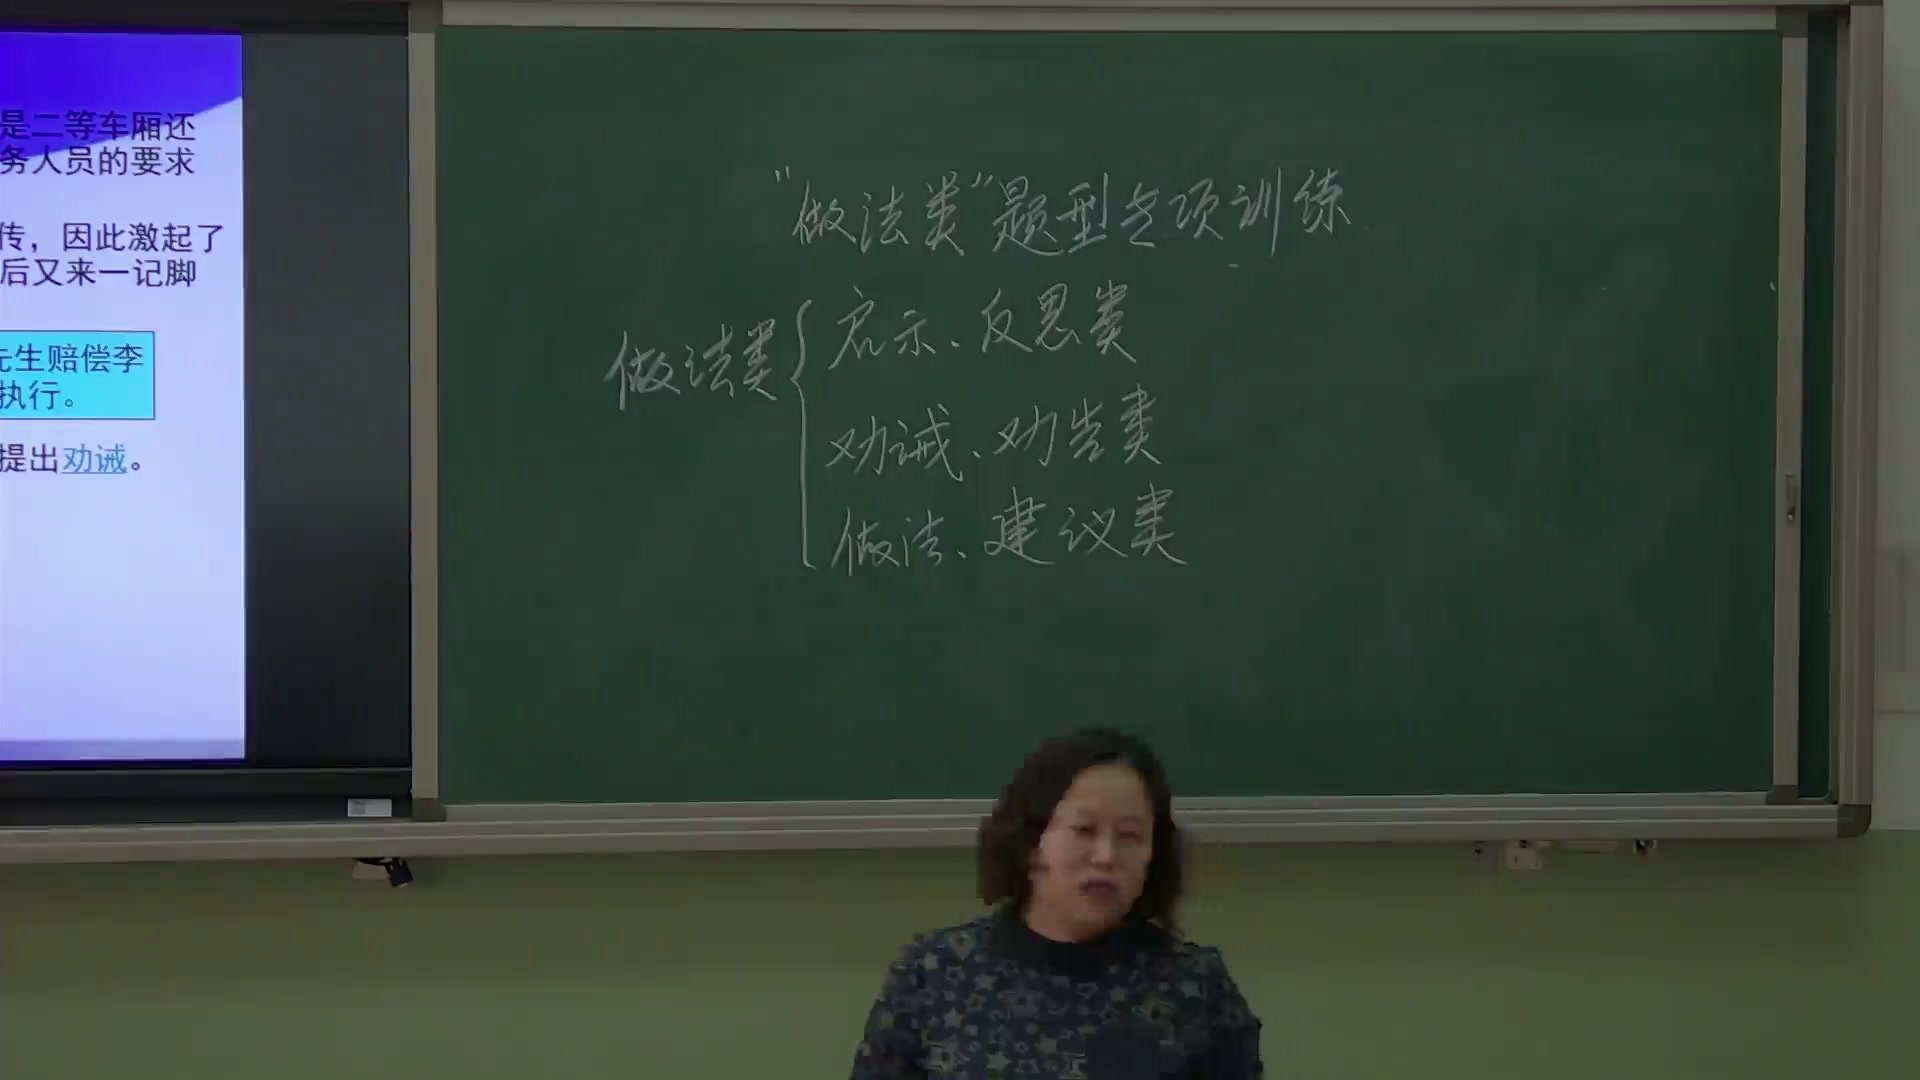 是二等车厢还
务人员的要求
传，因此激起了
后又来一记脚
先生赔偿李
执行。
提出劝诫。
"做法类"题型专项训练
做法类
启示、反思类
劝诫、劝告类
做法、建议类